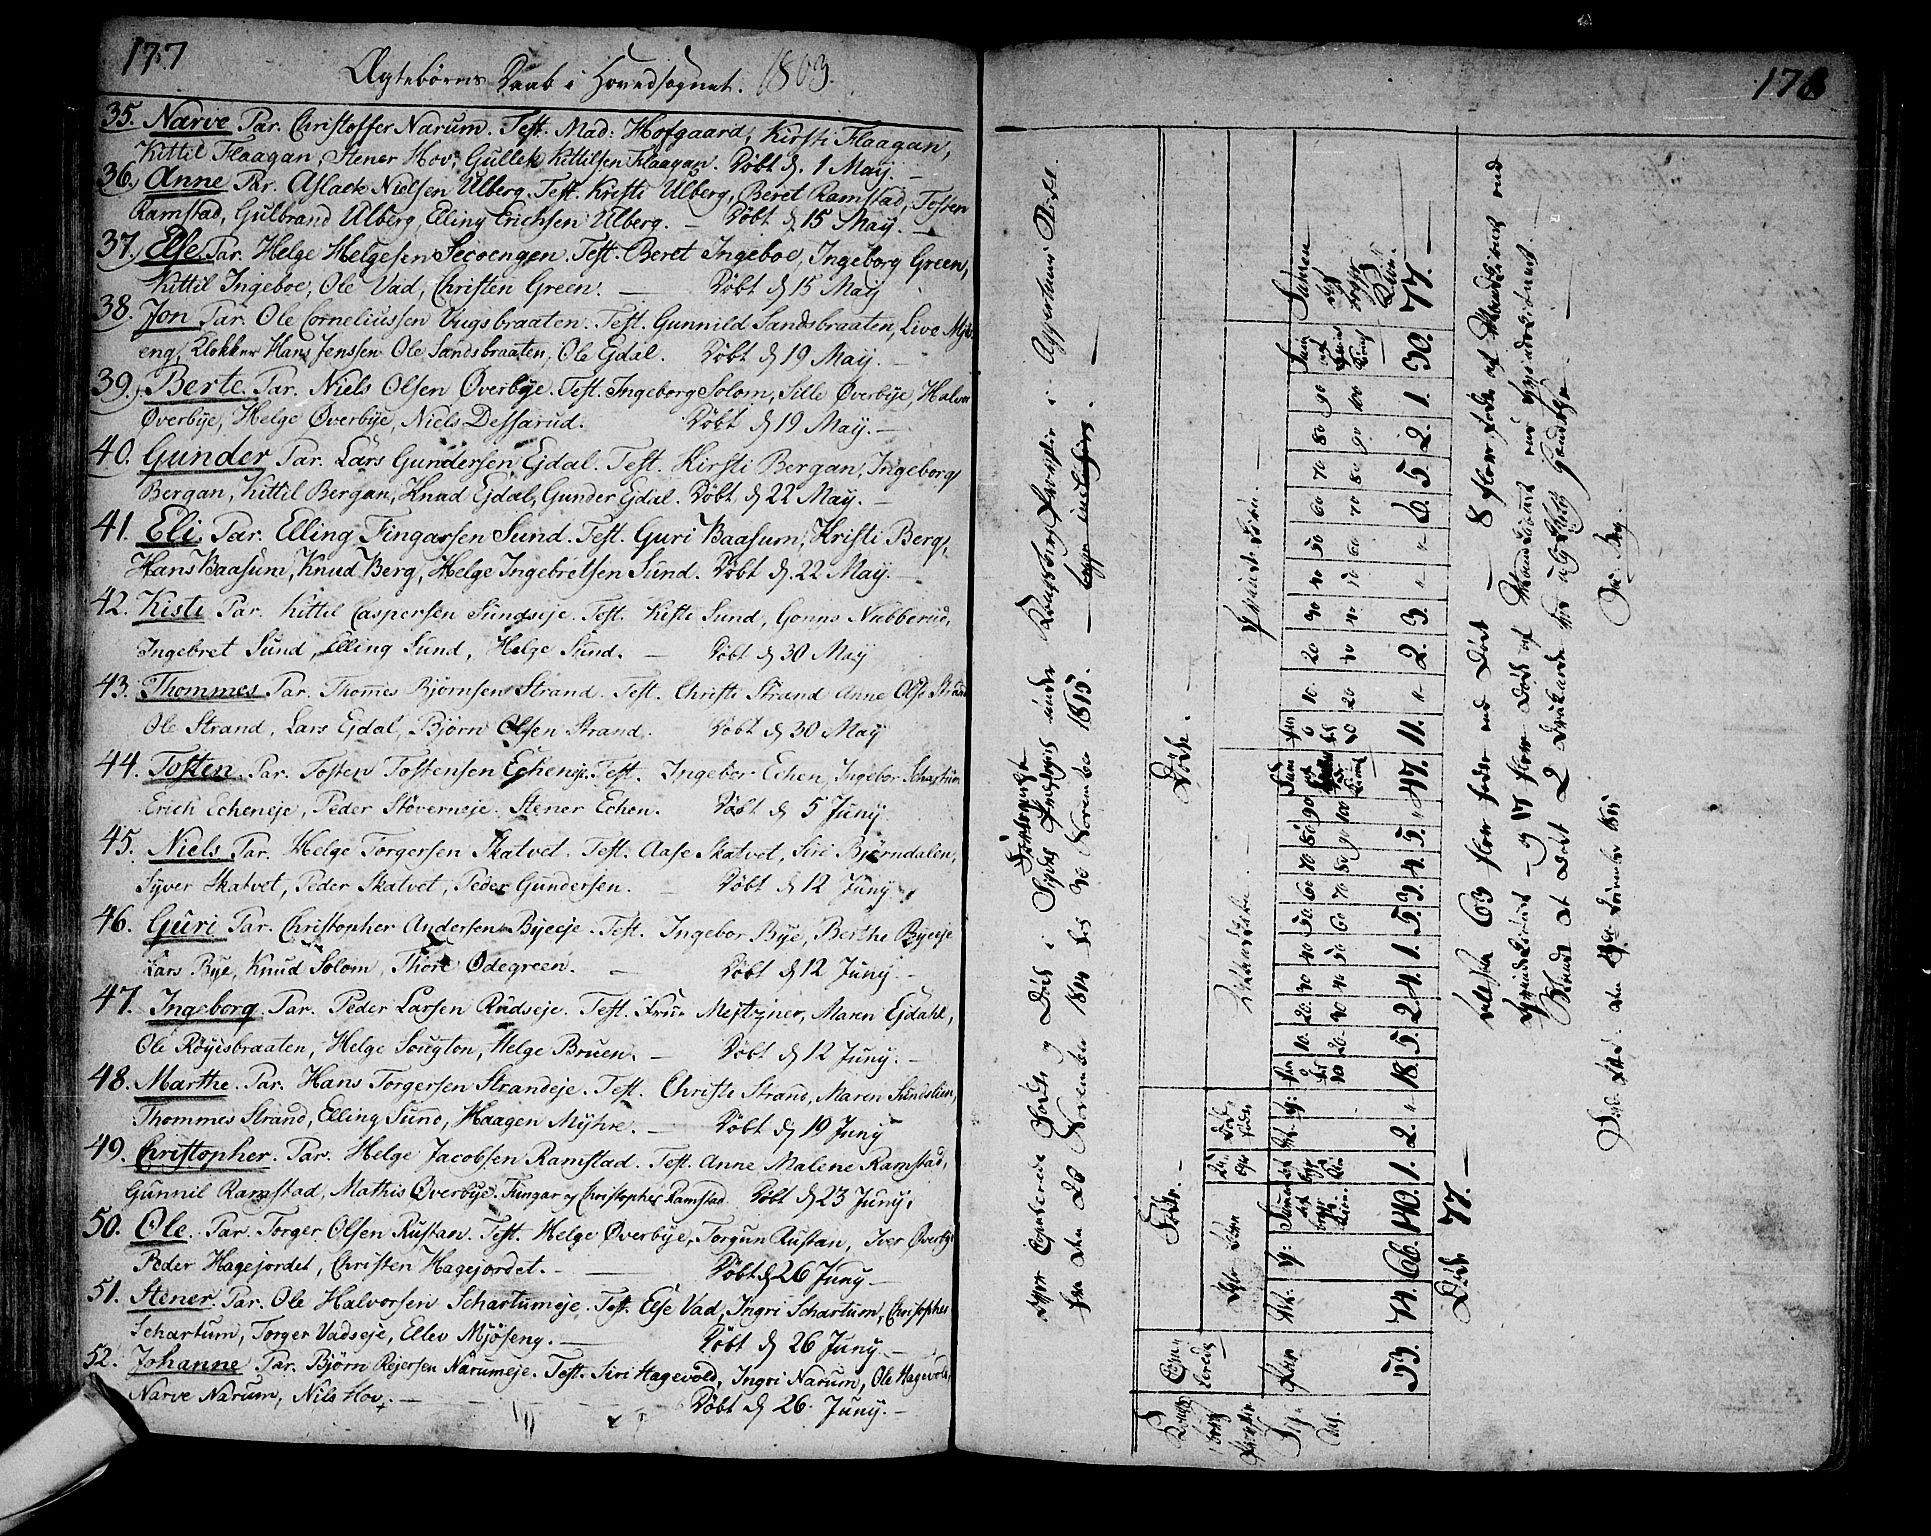 177
Ægtebørns Daab i Hovedsognet. 1803.
35. Narve Par. Christoffer Narum. Test. Mad: Hofgaard, Kirsti Flaagan,
Kittil Flaagan, Stener Hov, Gullek Kittilsen Flaagan. Døbt d. 1 May. —
36. Anne Par. Aslack Nielsen Ulberg. Test. Kirsti Ulberg, Beret Ramstad, Tosten
Ramstad, Gulbrand Ulberg, Elling Erichsen Ulberg. — Døbt d. 15 May. —
37. Else Par. Helge Helgesen Secoengen. Test. Beret Ingeboe, Ingeborg Green,
Kittil Ingeboe, Ole Vad, Christen Green. — Døbt d 15 May
38. Jon Par. Ole Corneliussen Vugsbraaten. Test. Gunnild Sandsbraaten, Live Mjös
eng, Klokker Hans Jenssen Ole Sandsbraaten, Ole Ejdal. Døbt d 19 May. —
39. Berte Par. Niels Olsen Øverbye. Test. Ingeborg Solom, Sille Øverbye, Halvor
Øverbye, Helge Øverbye, Niels Dessarud. Døbt d 19 May. —
40. Gunder Par. Lars Gundersen Ejdal. Test. Kirsti Bergan, Ingeborg
Bergan, Kittil Bergan, Knud Ejdal, Gunder Ejdal. Døbt d 22 May. —
41. Eli. Par. Elling Fingarsen Sund. Test. Guri Baasum, Kristi Berg,
Hans Baasum, Knud Berg, Helge Ingebretsen Sund. Døbt d. 22 May. —
42. Kisti Par. Kittil Caspersen Sundseje. Test. Kisti Sund, Gonns Nubberud,
Ingebret Sund, Elling Sund, Helge Sund. — Døbt d 30 May
43. Thommes Par. Thomes Bjørnsen Strand. Test. Christi Strand Anne Olse Strand
Ole Strand, Lars Ejdal, Bjørn Olsen Strand. Døbt d 30 May
44. Tosten. Par. Tosten Tostensen Echeneje. Test. Ingebor Echen, Ingebor Schartum
Erich Echeneje, Peder Støverneje. Stener Echen. Døbt d 5 Juny
45. Niels Par. Helge Torgersen Skatvet. Test. Aase Skatvet, Siri Bjørndalen,
Syver Skatvet, Peder Skatvet, Peder Gundersen. — Døbt d 12 Juny.
46. Guri Par. Christopher Andersen Byeeje. Test. Ingebor Bye, Berthe Byeeje
Lars Bye, Knud Solom, Thore Ødegreen. — Døbt d 12 Juny. —
47. Ingeborg. Par. Peder Larsen Rudseje. Test. Frue Mestzner, Maren Ejdahl,
Ole Røyisbraaten, Helge Sougton, Helge Bruen. — Døbt d 12 Juny. —
48. Marthe. Par. Hans Torgersen Strandeje. Test. Christi Strand, Maren Sundslien,
Thommes Strand, Elling Sund, Haagen Myhre. — Døbt d 19 Juny
49. Christopher. Par. Helge Jacobsen Ramstad. Test. Anne Malene Ramstad,
Gunnil Ramstad, Mathis Øverbye. Fungar og Christopher Ramstad. Døbt d 23 Juny.
50. Ole. Par. Torger Olsen Rustan. Test. Helge Øverbye, Torgun Rustan, Iver Øverbye
Peder Hagejordet, Christen Hagejordet. — Døbt d 26 Juny. —
51. Stener. Par. Ole Halvorsen Schartumeje. Test. Else Vad, Ingri Schartum, Christopher
Schartum, Torger Vadseje, Ellev Mjøseng. — Døbt d 26 Juny. —
52. Johanne Par. Bjørn Rejersen Narumeje. Test. Siri Hagevold, Ingri Narum, Ole Hagevold,
Narve Narum, Nils Hov. — Døbt d 26 Juny. —
178
Fortegnelse
over Copulerede Fødte og Døde i Sigdals Præstegield under Kongsberg Provstie i Aggershuus Stift
fra den 28 November 1814 til 30 November 1815.
Fødte. — Døde. —
Mandkiøn — Qvindekiøn —
Par
M: Q:
10. 20. 30 40 50. 60 70 80 90
20 30 40 50 60 70 80 90 100
53. 74. 66. 140. 1. 2. " 18. 5. 2. 4. 1. 5. 3. 4. 5. " 47. 11. " 2. 3. " " 6. 5. 2. 1. 30. 77. —
Døde 77. —
altsaa 63 flere fødte end Døde — 8 flere fødte af Mandkiønnet end
Qvindekiønnet — og 17 flere Døde af Mandkiønnet end Qvindekiønnet. —
Blandt de Døde 2